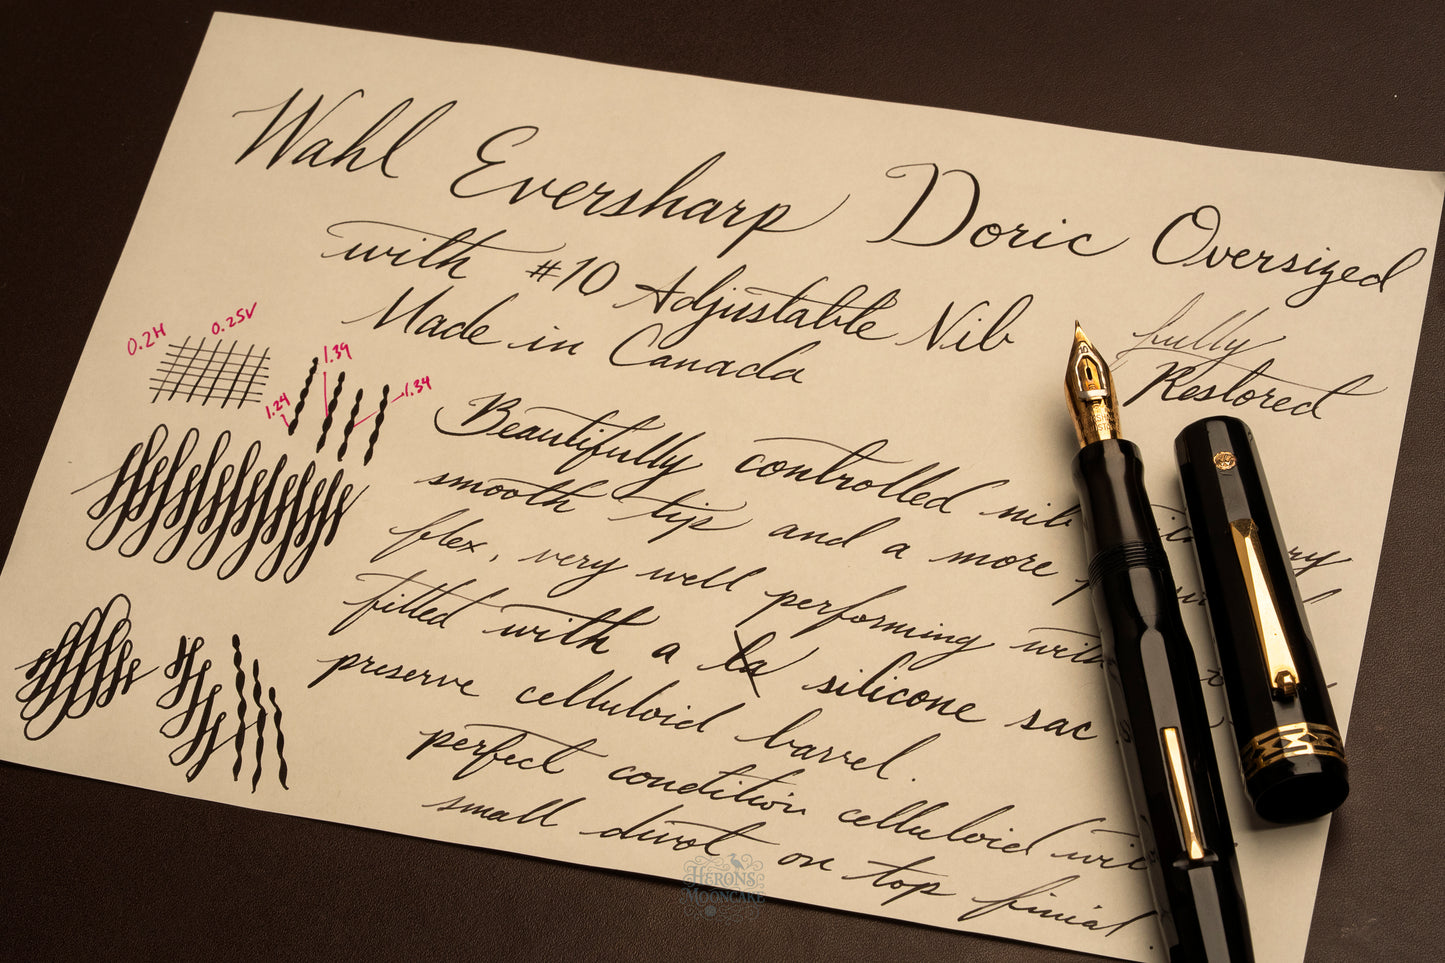 Wahl Eversharp Doric Oversized
with #10 Adjustable Nib
fully
Made in Canada
Restored
0.2H
0.25V
1.24
1.39
1.34
Beautifully controlled nib
smooth tip and a more
flex, very well performing with
fitted with a la silicone sac
preserve celluloid barrel.
perfect condition celluloid
small divot on top finial.
10
HERONS
MOONCAKE